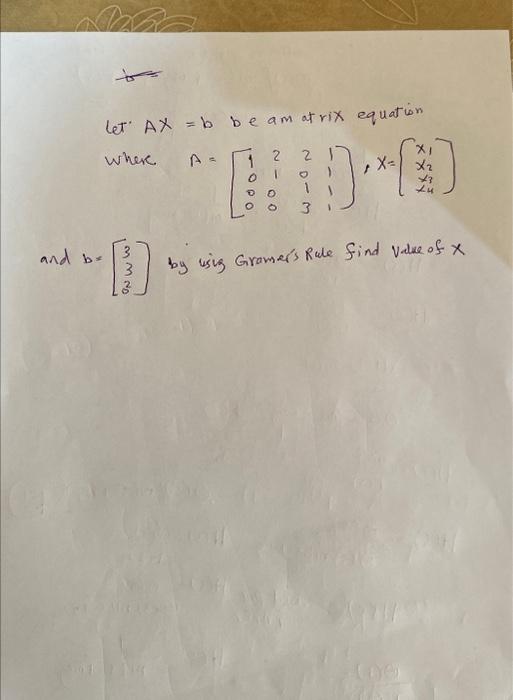 let AX = b be am at rix equation
where A = [1 2 2 1
0 1 0 1
0 0 1 1
0 0 3 1], X= [x1
x2
x3
x4]
and b= [3
3
2
0] by using Gramer's Rule find value of X